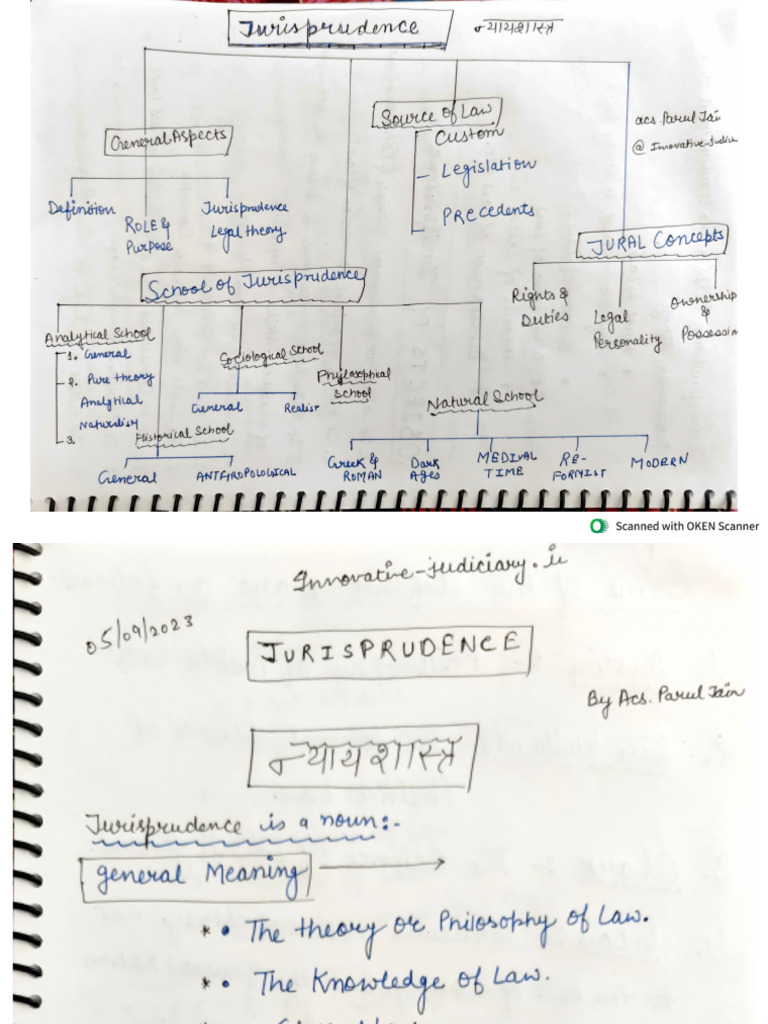 Jurisprudence न्यायशास्त्र
Source of Law
General Aspects
Custom
Legislation
Precedents
acs. Parul Jai
@ Innovative-Judicia
Definition
Role & Purpose
Jurisprudence Legal theory
JURAL Concepts
Rights & Duties
Legal Personality
Ownership & Possession
School of Jurisprudence
Analytical School
1. General
2. Pure theory
Analytical
Naturalism
3.
Sociological School
General Realist
Philosophical School
Natural School
Historical School
General ANTHROPOLOGICAL
Greek & ROMAN
Dark Ages
MEDIVAL TIME
RE-FORMIST
MODERN
Scanned with OKEN Scanner
Innovative-judiciary.in
05/09/2023
JURISPRUDENCE
By Acs. Parul Jain
न्यायशास्त्र
Jurisprudence is a noun:-
general Meaning
* • The theory or Philosophy of Law.
* • The Knowledge of Law.